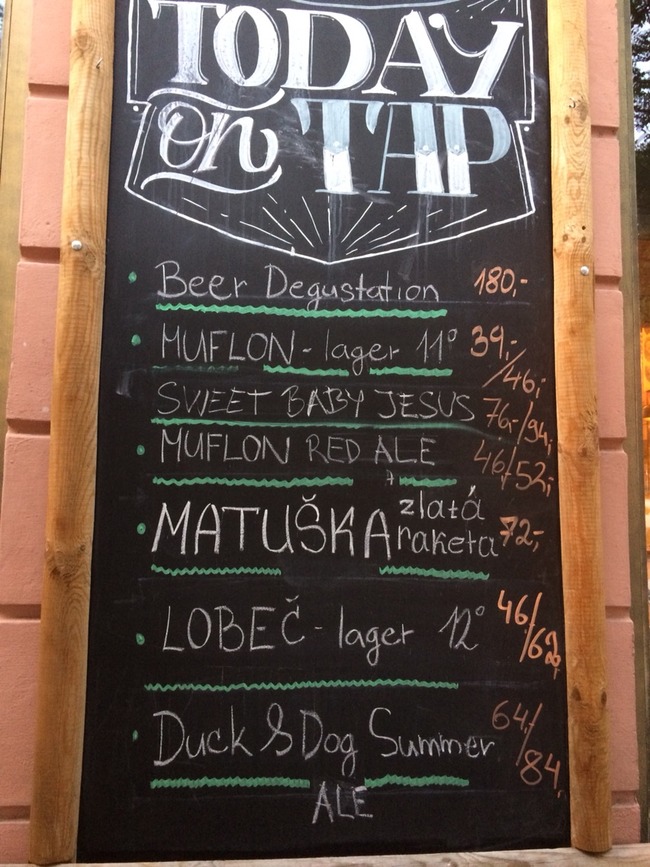 TODAY
on TAP
Beer Degustation 180,-
MUFLON - lager 11° 39,-/46,-
SWEET BABY JESUS 76,-/94,-
MUFLON RED ALE 46/52,-
MATUŠKA zlatá
raketa 72,-
LOBEČ - lager 12° 46/62,
Duck & Dog Summer 64/84,
ALE